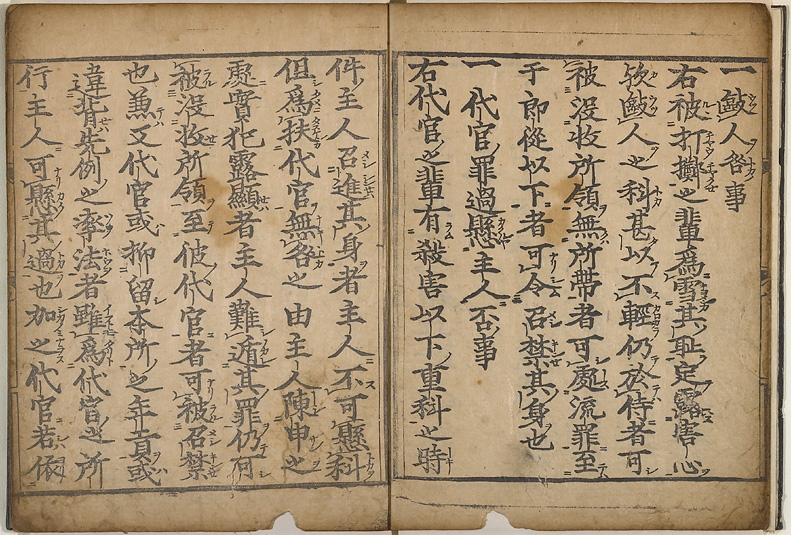 一敺人咎事
右被打擲之輩爲雪其耻定露害心
歟敺人之科甚以不輕仍於侍者可
被没收所領無所帶者可處流罪至
于郎從以下者可令召禁其身也
一代官罪過懸主人否事
右代官之輩有殺害以下重科之時
件主人召進其身者主人不可懸科
但爲扶代官無咎之由主人陳申之
處實犯露顯者主人難遁其罪仍可
被没收所領至彼代官者可被召禁
也兼又代官或抑留本所之年貢或
違背先例之率法者雖爲代官之所
行主人可懸其過也加之代官若依